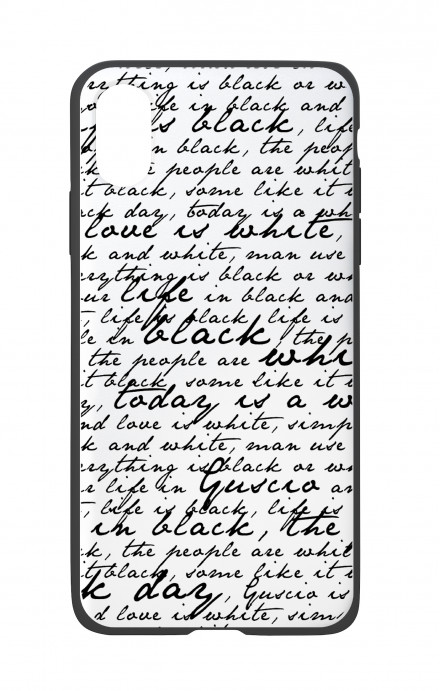 everything is black or w
life in black and
is black, life
in black, the peop
the people are whit
it black, some like it i
ck day, today is a wh
love is white,
k and white, man use
erything is black or wh
ur life in black and
, life is black, life is
e in black, the p
the people are whi
it black, some like it i
y, today is a w
nd love is white, simp
k and white, man use
erything is black or wh
r life in Guscio an
t, life is black, life is
in black, the
k, the people are whit
t black, some like it i
k day, Guscio is
d love is white, sim